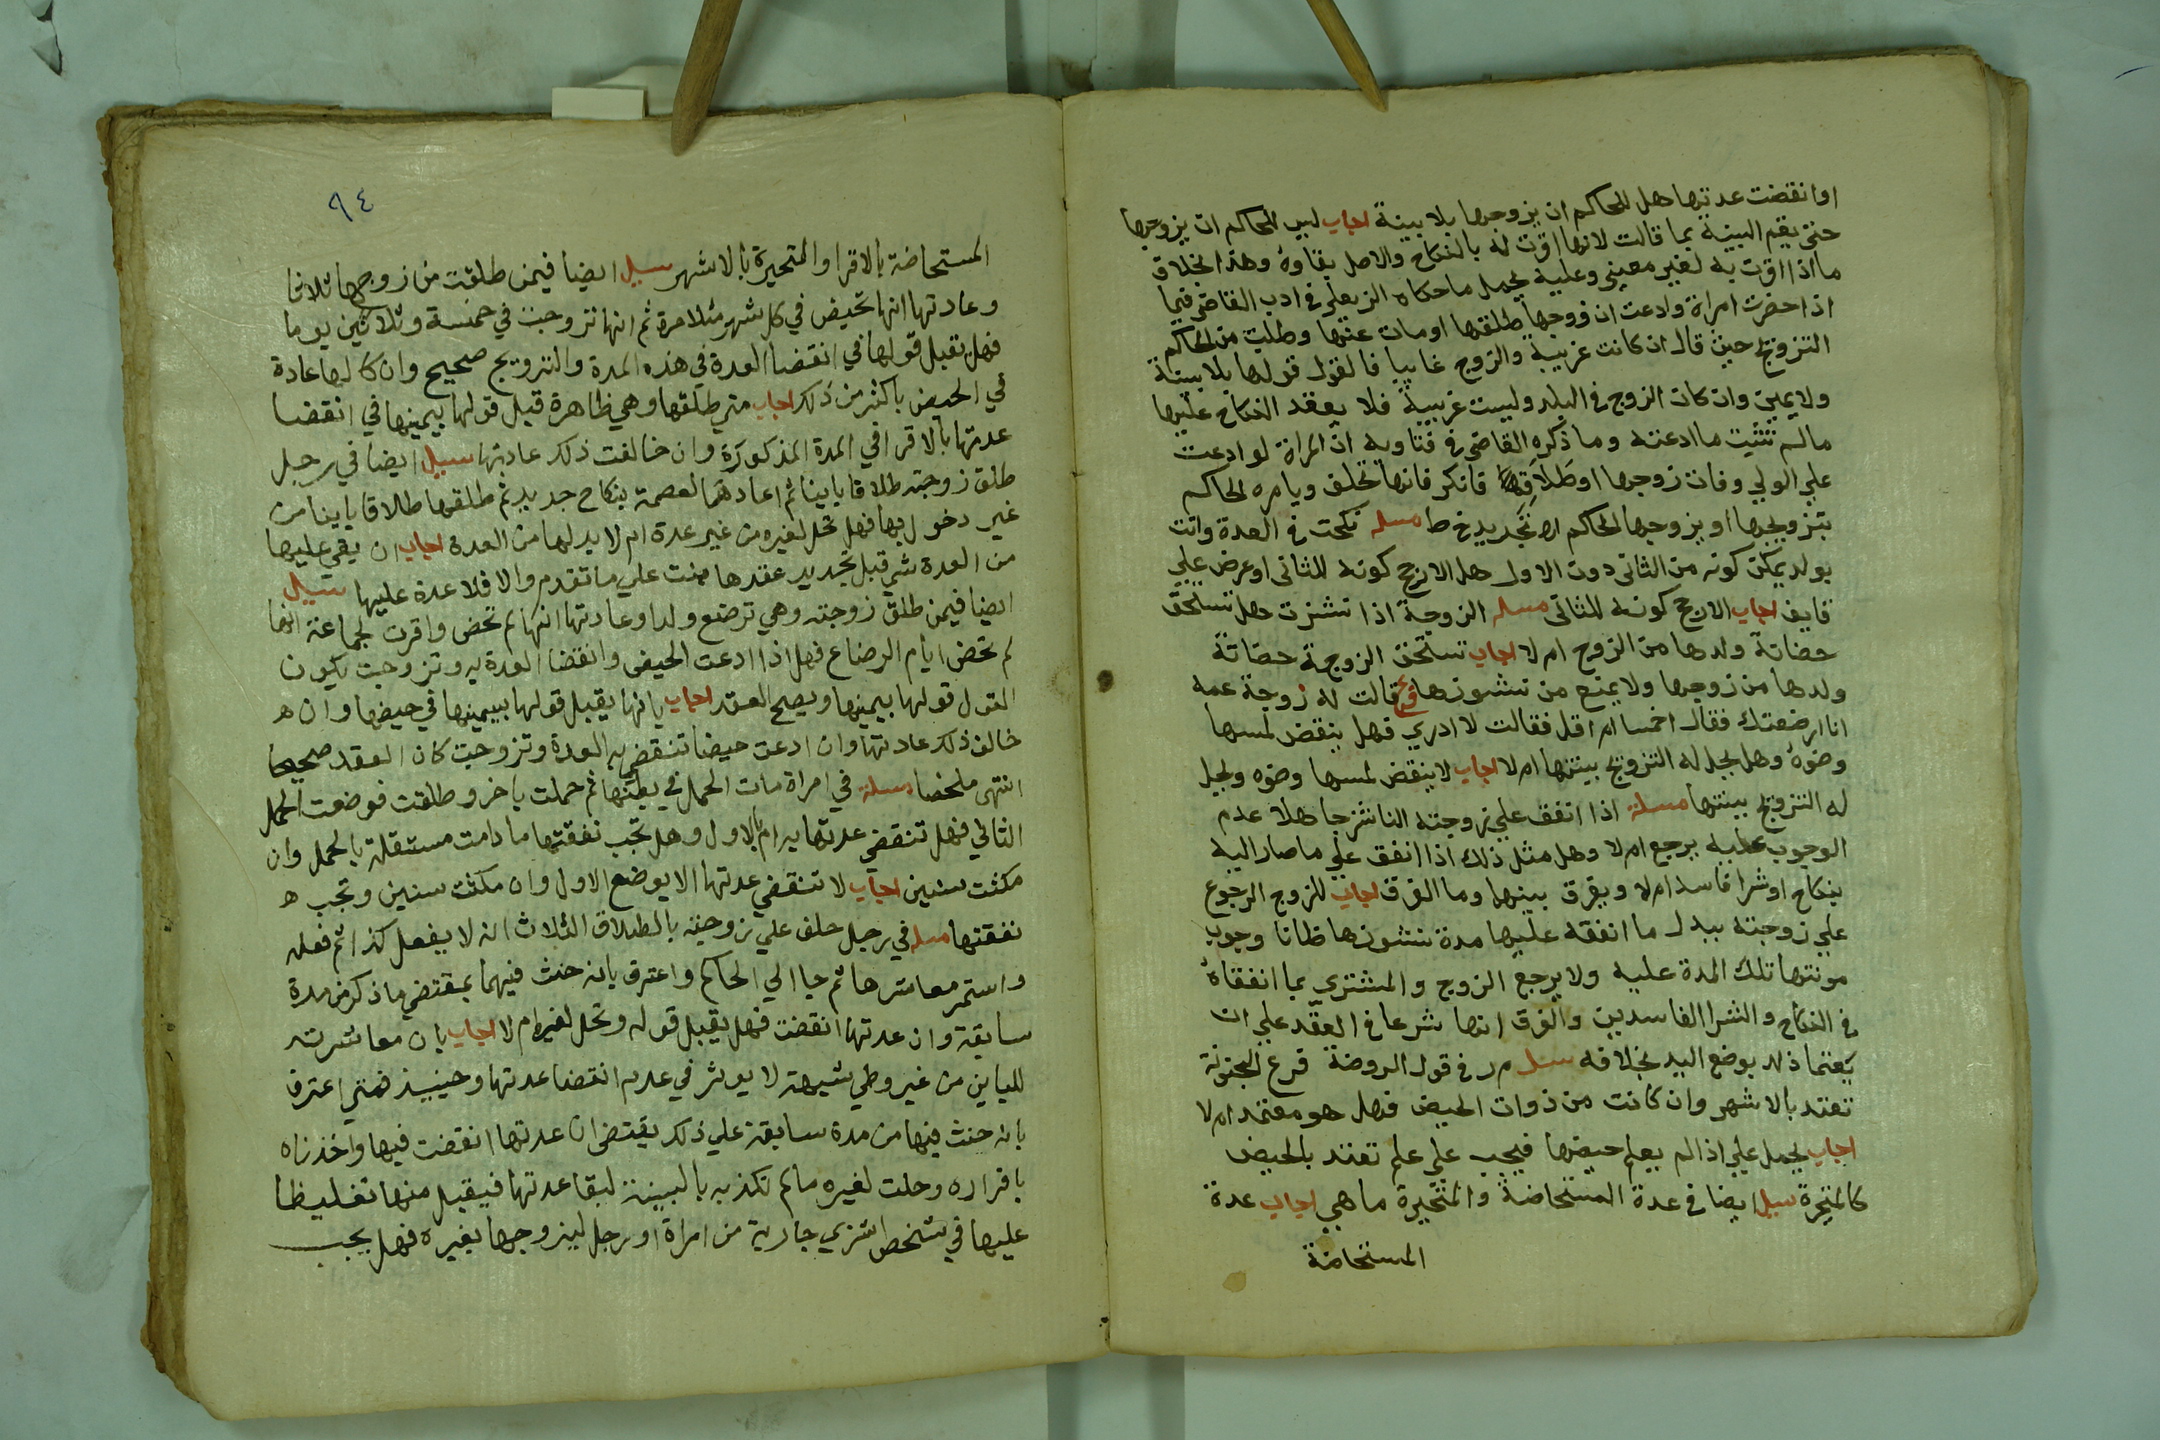 اوانقضت عدتها هل للحاكم ان يزوجها بلا بينة اجاب ليس للحاكم ان يزوجها
حتى يقيم البينة بما قالت لانها اقرت له بالنكاح والاصل بقاوه وهذا بخلاف
ما اذا اقرت به لغير معين وعليه يحمل ما حكاه الزبيلي في ادب القاضي فيما
اذا حضرت امراة وادعت ان زوجها طلقها او مات عنها وطلبت من الحاكم
التزويج حيث قال ان كانت غريبة والزوج غايبا فالقول قولها بلا بينة
ولا يمين وان كان الزوج في البلد وليست غريبة فلا يعقد النكاح عليها
مالم تثبت ما ادعته وما ذكره القاضي في فتاويه ان المراة لو ادعت
علي الولي وفات زوجها او طلاقه فانكر فانها تحلف ويامره الحاكم
بتزويجها او يزوجها الحاكم اه تجريد خ ط مسله نكحت في العدة واتت
بولد يمكن كونه من الثاني دون الاول هل الارجح كونه للثاني اوعرض علي
قايف اجاب الارجح كونه للثاني مسله الزوجة اذا نشزت هل تستحق
حضانة ولدها من الزوج ام لا اجاب تستحق الزوجة حضانة
ولدها من زوجها ولا يمنع من نشوزها فرع قالت له زوجة عمه
انا ارضعتك فقال اخمسا ام اقل فقالت لا ادري فهل ينقض لمسها
وضوه وهل يحل له التزوج ببنتها ام لا اجاب لا ينقض لمسها وضوه ويحل
له التزوج ببنتها مسله اذا انفق علي زوجته الناشز جاهلا عدم
الوجوب عليه يرجع ام لا وهل مثل ذلك اذا انفق علي ما صار اليه
بنكاح اوشرا فاسد ام لا ويفرق بينهما وما الفرق اجاب للزوج الرجوع
علي زوجته ببدل ما انفقه عليها مدة نشوزها ظانا وجوب
مونتها تلك المدة عليه ولا يرجع الزوج والمشتري بما انفقاه
في النكاح والشرا الفاسدين والفرق انها شرعا في العقد علي ان
يضمنا ذلك بوضع اليد بخلافه سيل مر في قول الروضة فرع المجنونة
تعتد بالاشهر وان كانت من ذوات الحيض فهل هو معتمد ام لا
اجاب يحمل علي اذا لم يعلم حيضها فيجب علي علم تعتد بالحيض
كالمتحيرة سيل ايضا في عدة المستحاضة والمتحيرة ما هي اجاب عدة
المستحاضة
٩٤
المستحاضة بالاقرا والمتحيرة بالاشهر سيل ايضا فيمن طلقت من زوجها ثلاثا
وعادتها انها تحيض في كل شهر مثلا مرة ثم انها تزوجت في خمسة وثلاثين يوما
فهل تقبل قولها في انقضا العدة في هذه المدة والتزويج صحيح وان كا لها عادة
في الحيض باكثر من ذلك اجاب متي طلقها وهي ظاهرة قبل قولها بيمينها في انقضا
عدتها بالاقرا في المدة المذكورة وان خالفت ذلك عادتها سيل ايضا في رجل
طلق زوجته طلاقا باينا ثم اعادها لعصمته بنكاح جديد ثم طلقها طلاقا باينا من
غير دخول بها فهل تحل لغيره من غير عدة ام لا بد لها من العدة اجاب ان بقي عليها
من العدة شي قبل تجديد عقدها بنت علي ما تقدم والا فلا عدة عليها سيل
ايضا فيمن طلق زوجته وهي ترضع ولدا وعادتها انها لم تحض واقرت لجماعة انها
لم تحض ايام الرضاع فهل اذا ادعت الحيض وانقضا العدة به وتزوجت يكون
القول قولها بيمينها ويصح العقد اجاب بانها يقبل قولها بيمينها في حيضها وان ه
خالف ذلك عادتها وان ادعت حيضا تنقضي به العدة وتزوجت كان العقد صحيحا
انتهى ملخصا مسلة في امراة مات الحمل في بطنها ثم حملت باخر وطلقت فوضعت الحمل
الثاني فهل تنقضي عدتها به ام بالاول وهل تجب نفقتها ما دامت مستقلة بالحمل وان
مكثت سنين اجاب لا تنقضي عدتها الا بوضع الاول وان مكثت سنين وتجب ه
نفقتها مسله في رجل حلف علي زوجته بالطلاق الثلاث انه لا يفعل كذا ثم فعله
واستمر معاشرها ثم جا الي الحاكم واعترف بانه حنث فيهما بمقتضي ما ذكر من مدة
سابقة وان عدتها انقضت فهل يقبل قوله وتحل لغيره ام لا اجاب بان معاشرته
للباين من غير وطي بشبهة لا يوثر في عدم انقضا عدتها وحينيذ فمتي اعترف
بانه حنث فيها من مدة سابقة علي ذلك يقتضى ان عدتها انقضت فيها واخذناه
باقراره وحلت لغيره ما لم تكذبه بالبينة لبقا عدتها فيقبل منها تغليظا
عليها في شخص اشتري جارية من امراة او رجل ليزوجها بغيره فهل يجب